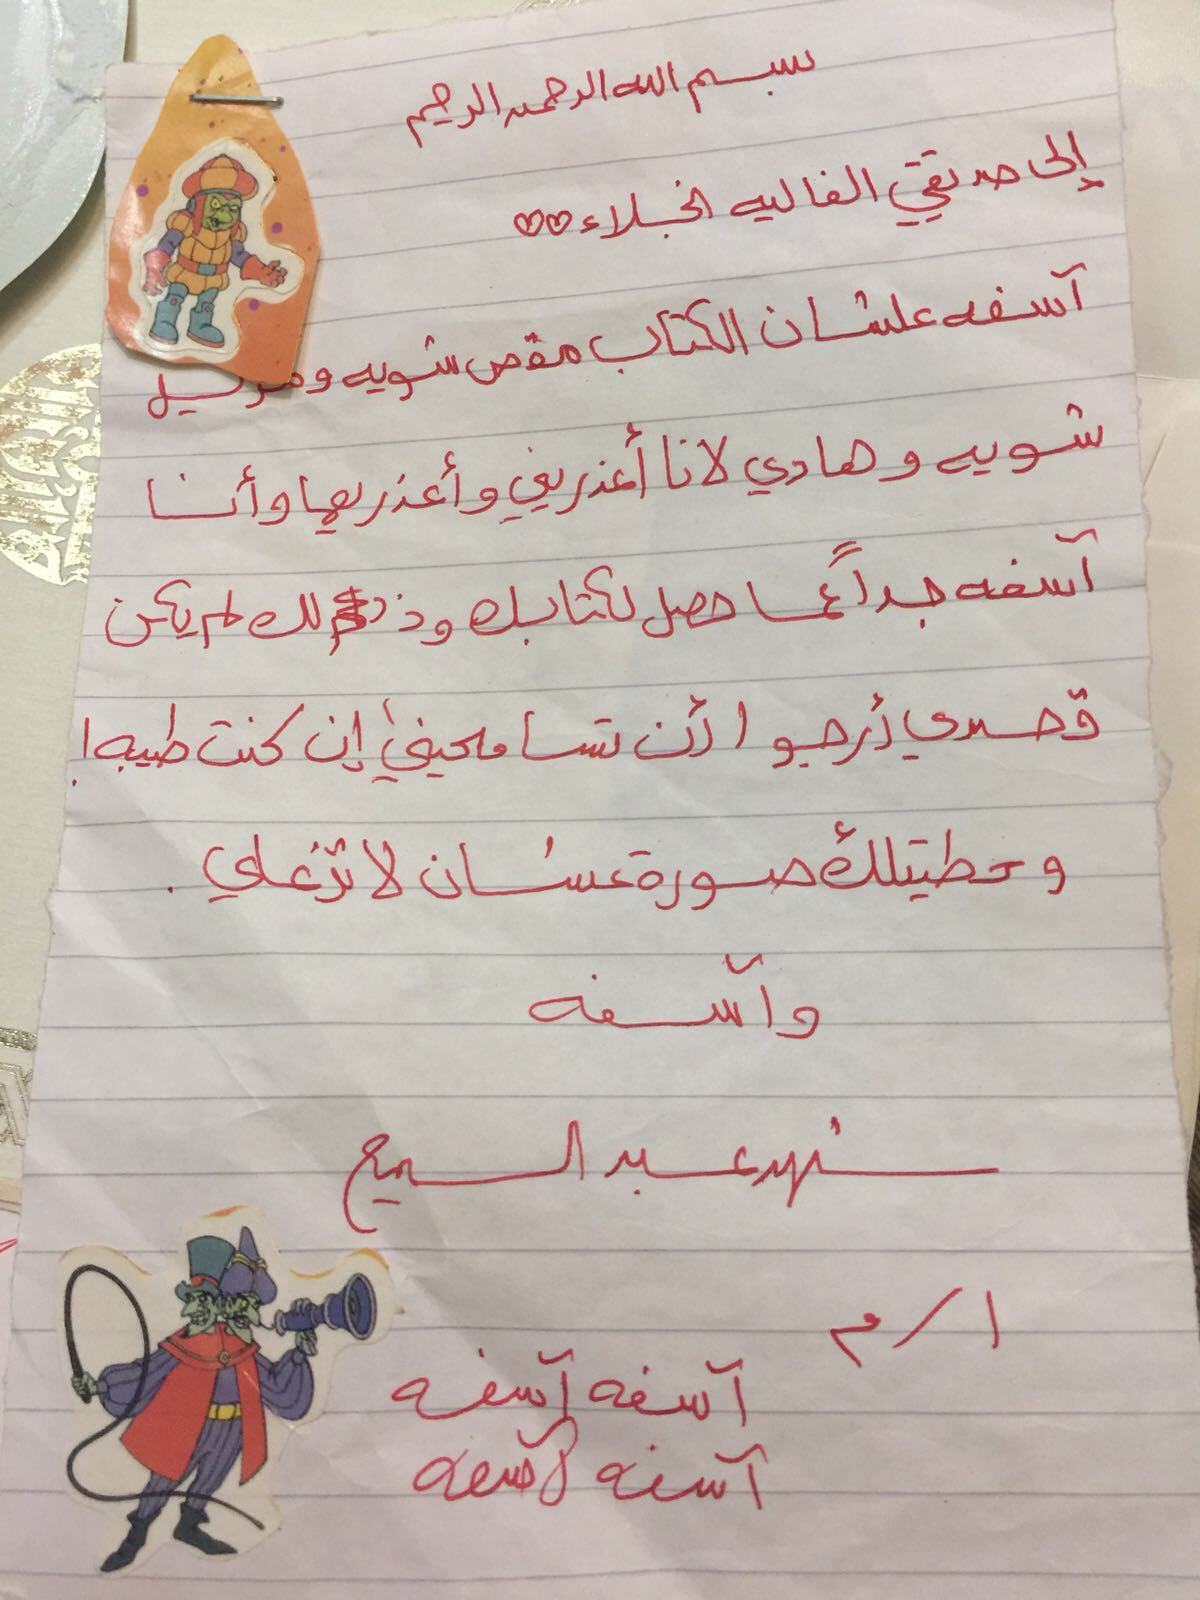 بسم الله الرحمن الرحيم
إلى صديقتي الغاليه الخلاء
آسفه علشان الكتاب مقص شويه و
شويه وهادي لانا أعذريني وأعذريها وأنا
آسفه جداً عما حصل لكتابك وذلك لم يكن
قصدي أرجوا أن تسامحيني إن كنت طيبه!
وحطيتلك صورة عشان لا تزعلي.
وآسفه
شهد عبد السميع
ا / م
آسفه آسفه
آسفه آسفه